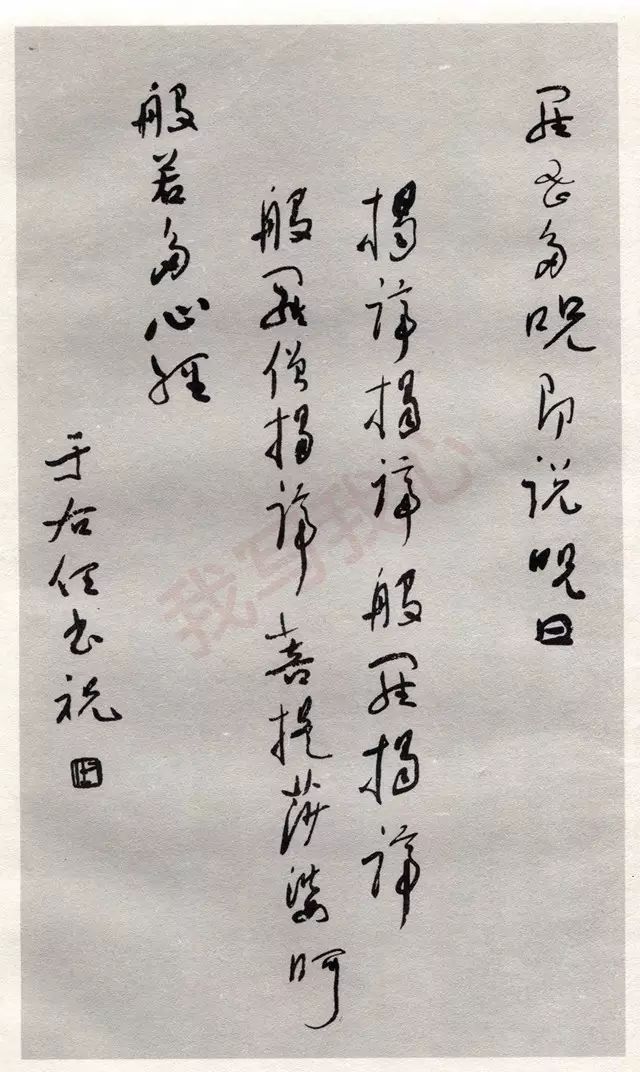 羅蜜多呪即說呪曰
揭諦揭諦般羅揭諦
般羅僧揭諦菩提莎婆呵
般若多心經
于右任書祝
我写我心